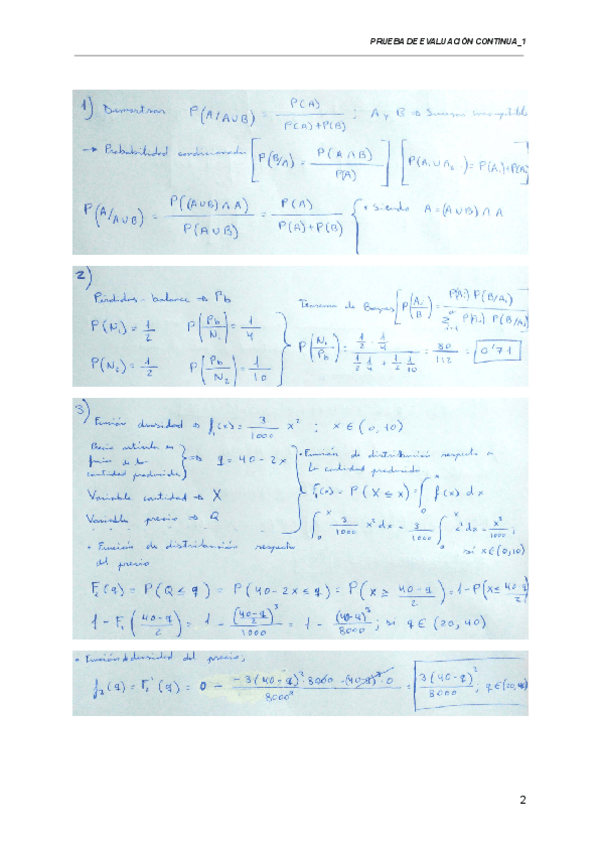 PRUEBA DE EVALUACIÓN CONTINUA_1
1) Demostrar P(A/A∪B) = P(A) / P(A)+P(B) ; A y B → Sucesos
→ Probabilidad condicionada [P(B/A) = P(A∩B) / P(A)] [P(A₁∪A₂) = P(A₁)+P(A
P(A/A∪B) = P((A∪B)∩A) / P(A∪B) = P(A) / P(A)+P(B) { • Siendo A=(A∪B)∩A
2)
Pérdidas - balance → Pb Teorema de Bayes [P(Ai/B) = P(Ai) P(B/Ai) / Σ P(Ai) P(B/Ai)
P(N₁) = 1/2 P(Pb/N₁) = 1/4
P(N₂) = 1/2 P(Pb/N₂) = 1/10 } P(N₁/Pb) = 1/2 · 1/4 / 1/2 1/4 + 1/2 1/10 = 80/112 = 0'71
3)
Función densidad → f₁(x) = 3/1000 x² ; x ∈ (0,10)
Precio artículo en
función de la
cantidad producida } ⇒ q = 40-2x
Variable cantidad → X
Variable precio → Q
• Función de distribución respecto a
la cantidad producida
F₁(x) = P(X ≤ x) = ∫₀ˣ f(x) dx
∫₀ˣ 3/1000 x² dx = 3/1000 ∫₀ˣ x² dx = x³/1000 ;
si x∈(0,10)
• Función de distribución respecto
del precio
F₂(q) = P(Q ≤ q) = P(40-2x ≤ q) = P(x ≥ 40-q/2) = 1-P(x ≤ 40-q/2)
1 - F₁(40-q/2) = 1 - (40-q/2)³/1000 = 1 - (40-q)³/8000 ; si q ∈ (20,40)
• Función de densidad del precio;
f₂(q) = F₂'(q) = 0 - -3(40-q)²·8000 -(40-q)³·0 / 8000² = 3(40-q)²/8000 ; q∈(20,40)
2